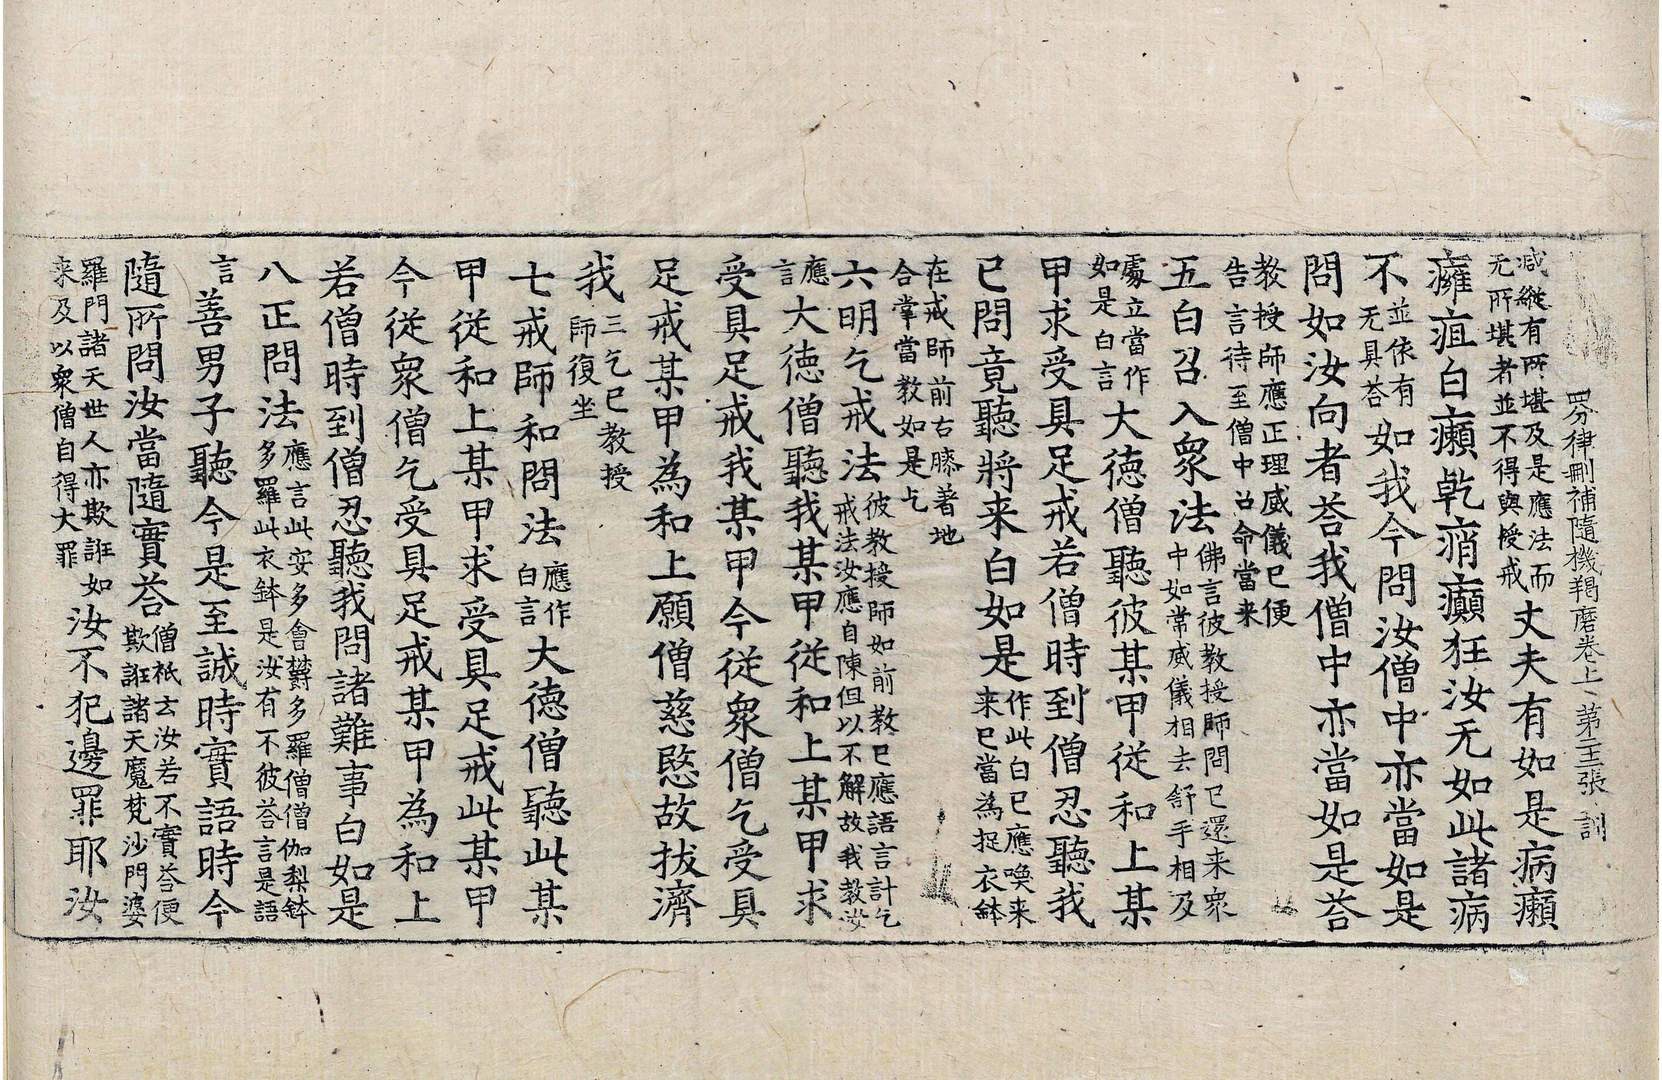 四分律刪補隨機羯磨卷上 第二十三張 訓
減縱有所堪及是應法而
无所堪者並不得與授戒
丈夫有如是病癩
癰疽白癩乾痟癲狂汝无如此諸病
不
並依有
无具荅
如我今問汝僧中亦當如是
問如汝向者荅我僧中亦當如是荅
教授師應正理威儀已便
告言待至僧中召命當来
五白召入衆法
佛言彼教授師問已還来衆
中如常威儀相去舒手相及
處立當作
如是白言
大徳僧聽彼某甲従和上某
甲求受具足戒若僧時到僧忍聽我
已問竟聽將来白如是
作此白已應喚来
来已當為捉衣鉢
在戒師前右膝著地
合掌當教如是乞
六明乞戒法
彼教授師如前教已應語言計乞
戒法汝應自陳但以不解故我教汝
應
言
大徳僧聽我某甲従和上某甲求
受具足戒我某甲今従衆僧乞受具
足戒某甲為和上願僧慈愍故拔濟
我
三乞已教授
師復坐
七戒師和問法
應作
白言
大德僧聽此某
甲従和上某甲求受具足戒此某甲
今従衆僧乞受具足戒某甲為和上
若僧時到僧忍聽我問諸難事白如是
八正問法
應言此安多會欝多羅僧僧伽梨鉢
多羅此衣鉢是汝有不彼荅言是語
言
善男子聽今是至誠時實語時今
隨所問汝當隨實荅
僧祇云汝若不實荅便
欺誑諸天魔梵沙門婆
羅門諸天世人亦欺誑如
来及以衆僧自得大罪
汝不犯邊罪耶汝